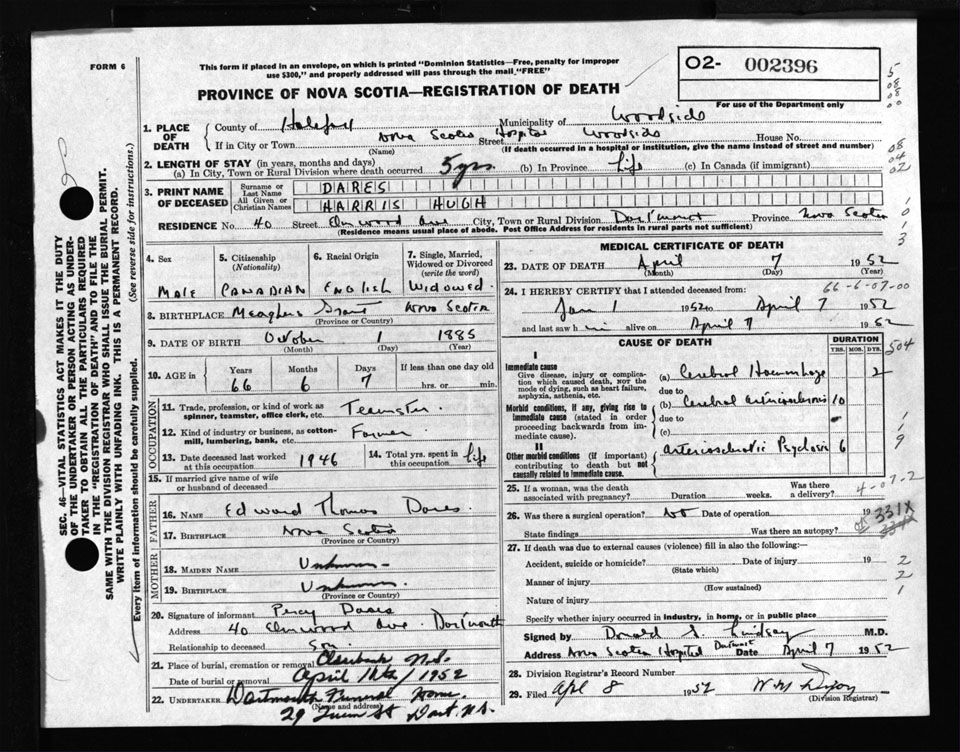 FORM 6
This form if placed in an envelope, on which is printed "Dominion Statistics—Free, penalty for improper
use $300," and properly addressed will pass through the mail "FREE"
O2- 002396
For use of the Department only
PROVINCE OF NOVA SCOTIA—REGISTRATION OF DEATH
SEC. 46—VITAL STATISTICS ACT MAKES IT THE DUTY
OF THE UNDERTAKER OR PERSON ACTING AS UNDER-
TAKER TO OBTAIN ALL THE PARTICULARS REQUIRED
IN THE "REGISTRATION OF DEATH" AND TO FILE THE
SAME WITH THE DIVISION REGISTRAR WHO SHALL ISSUE THE BURIAL PERMIT.
WRITE PLAINLY WITH UNFADING INK. THIS IS A PERMANENT RECORD.
Every item of information should be carefully supplied. (See reverse side for instructions.)
1. PLACE OF DEATH
County of Halifax Municipality of Woodside
If in City or Town Nova Scotia Hospital Street Woodside House No.
(Name) (If death occurred in a hospital or institution, give the name instead of street and number)
2. LENGTH OF STAY (in years, months and days)
(a) In City, Town or Rural Division where death occurred 5 yrs (b) In Province Life (c) In Canada (if immigrant)
3. PRINT NAME OF DECEASED
Surname or Last Name DARES
All Given or Christian Names HARRIS HUGH
RESIDENCE No. 40 Street Elmwood Ave City, Town or Rural Division Dartmouth Province Nova Scotia
(Residence means usual place of abode. Post Office Address for residents in rural parts not sufficient)
4. Sex
MALE
5. Citizenship (Nationality)
CANADIAN
6. Racial Origin
ENGLISH
7. Single, Married, Widowed or Divorced (write the word)
WIDOWED.
8. BIRTHPLACE Meaghers Grant Nova Scotia
(Province or Country)
9. DATE OF BIRTH October 1 1885
(Month) (Day) (Year)
10. AGE in Years Months Days If less than one day old
66 6 7 hrs. or min.
OCCUPATION
11. Trade, profession, or kind of work as spinner, teamster, office clerk, etc. Teamster
12. Kind of industry or business, as cotton-mill, lumbering, bank, etc. Farmer
13. Date deceased last worked at this occupation 1946
14. Total yrs. spent in this occupation Life
15. If married give name of wife or husband of deceased
FATHER
16. Name Edward Thomas Dares
17. BIRTHPLACE Nova Scotia
(Province or Country)
MOTHER
18. MAIDEN NAME Unknown
19. BIRTHPLACE Unknown
(Province or Country)
20. Signature of informant Percy Dares
Address 40 Elmwood Ave. Dartmouth
Relationship to deceased Son
21. Place of burial, cremation or removal N.S.
Date of burial or removal April /1952
22. UNDERTAKER Dartmouth Funeral Home.
(Name and address)
29 Queen St Dart. N.S.
MEDICAL CERTIFICATE OF DEATH
23. DATE OF DEATH April 7 1952
(Month) (Day) (Year)
66-6-07-00
24. I HEREBY CERTIFY that I attended deceased from:
Jan 1 1952 to April 7 1952
and last saw him alive on April 7 1952
CAUSE OF DEATH
DURATION
YRS. MOS. DYS.
I
Immediate cause
Give disease, injury or complication which caused death, not the mode of dying, such as heart failure, asphyxia, asthenia, etc.
(a) Cerebral Haemorrhage 2
due to
Morbid conditions, if any, giving rise to immediate cause (stated in order proceeding backwards from immediate cause).
(b) Cerebral arteriosclerosis 10
due to
(c)
II
Other morbid conditions (if important) contributing to death but not causally related to immediate cause.
arteriosclerotic Psychosis 6
504
25. If a woman, was the death associated with pregnancy? Duration weeks. Was there a delivery?
4-07-2
26. Was there a surgical operation? No Date of operation 19
State findings Was there an autopsy?
331X
27. If death was due to external causes (violence) fill in also the following:—
Accident, suicide or homicide? Date of injury 19
(State which)
Manner of injury
(How sustained)
Nature of injury
Specify whether injury occurred in industry, in home, or in public place
Signed by Donald S. Lindsay M.D.
Address Nova Scotia Hospital Dartmouth Date April 7 1952
28. Division Registrar's Record Number
29. Filed Apl 8 1952
(Division Registrar)